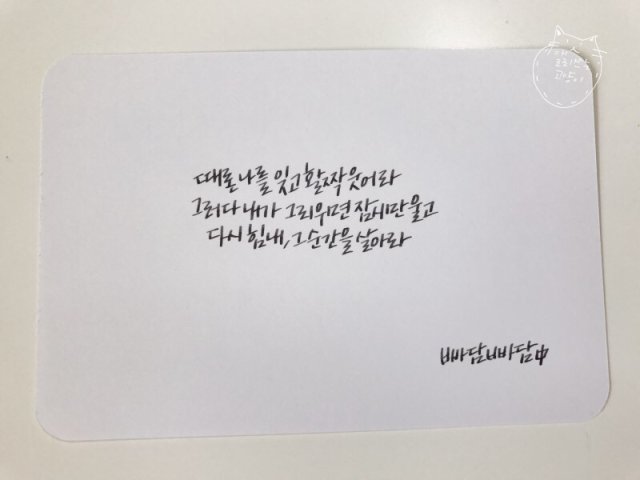 때론 나를 잊고 활짝 웃어라
그러다 내가 그리우면 잠시만 울고
다시 힘내, 그 순간을 살아라
빠담빠담 中